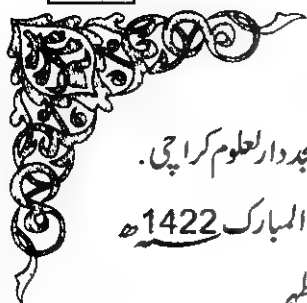 جد دارلعلوم کراچی .
المبارک 1422ھ